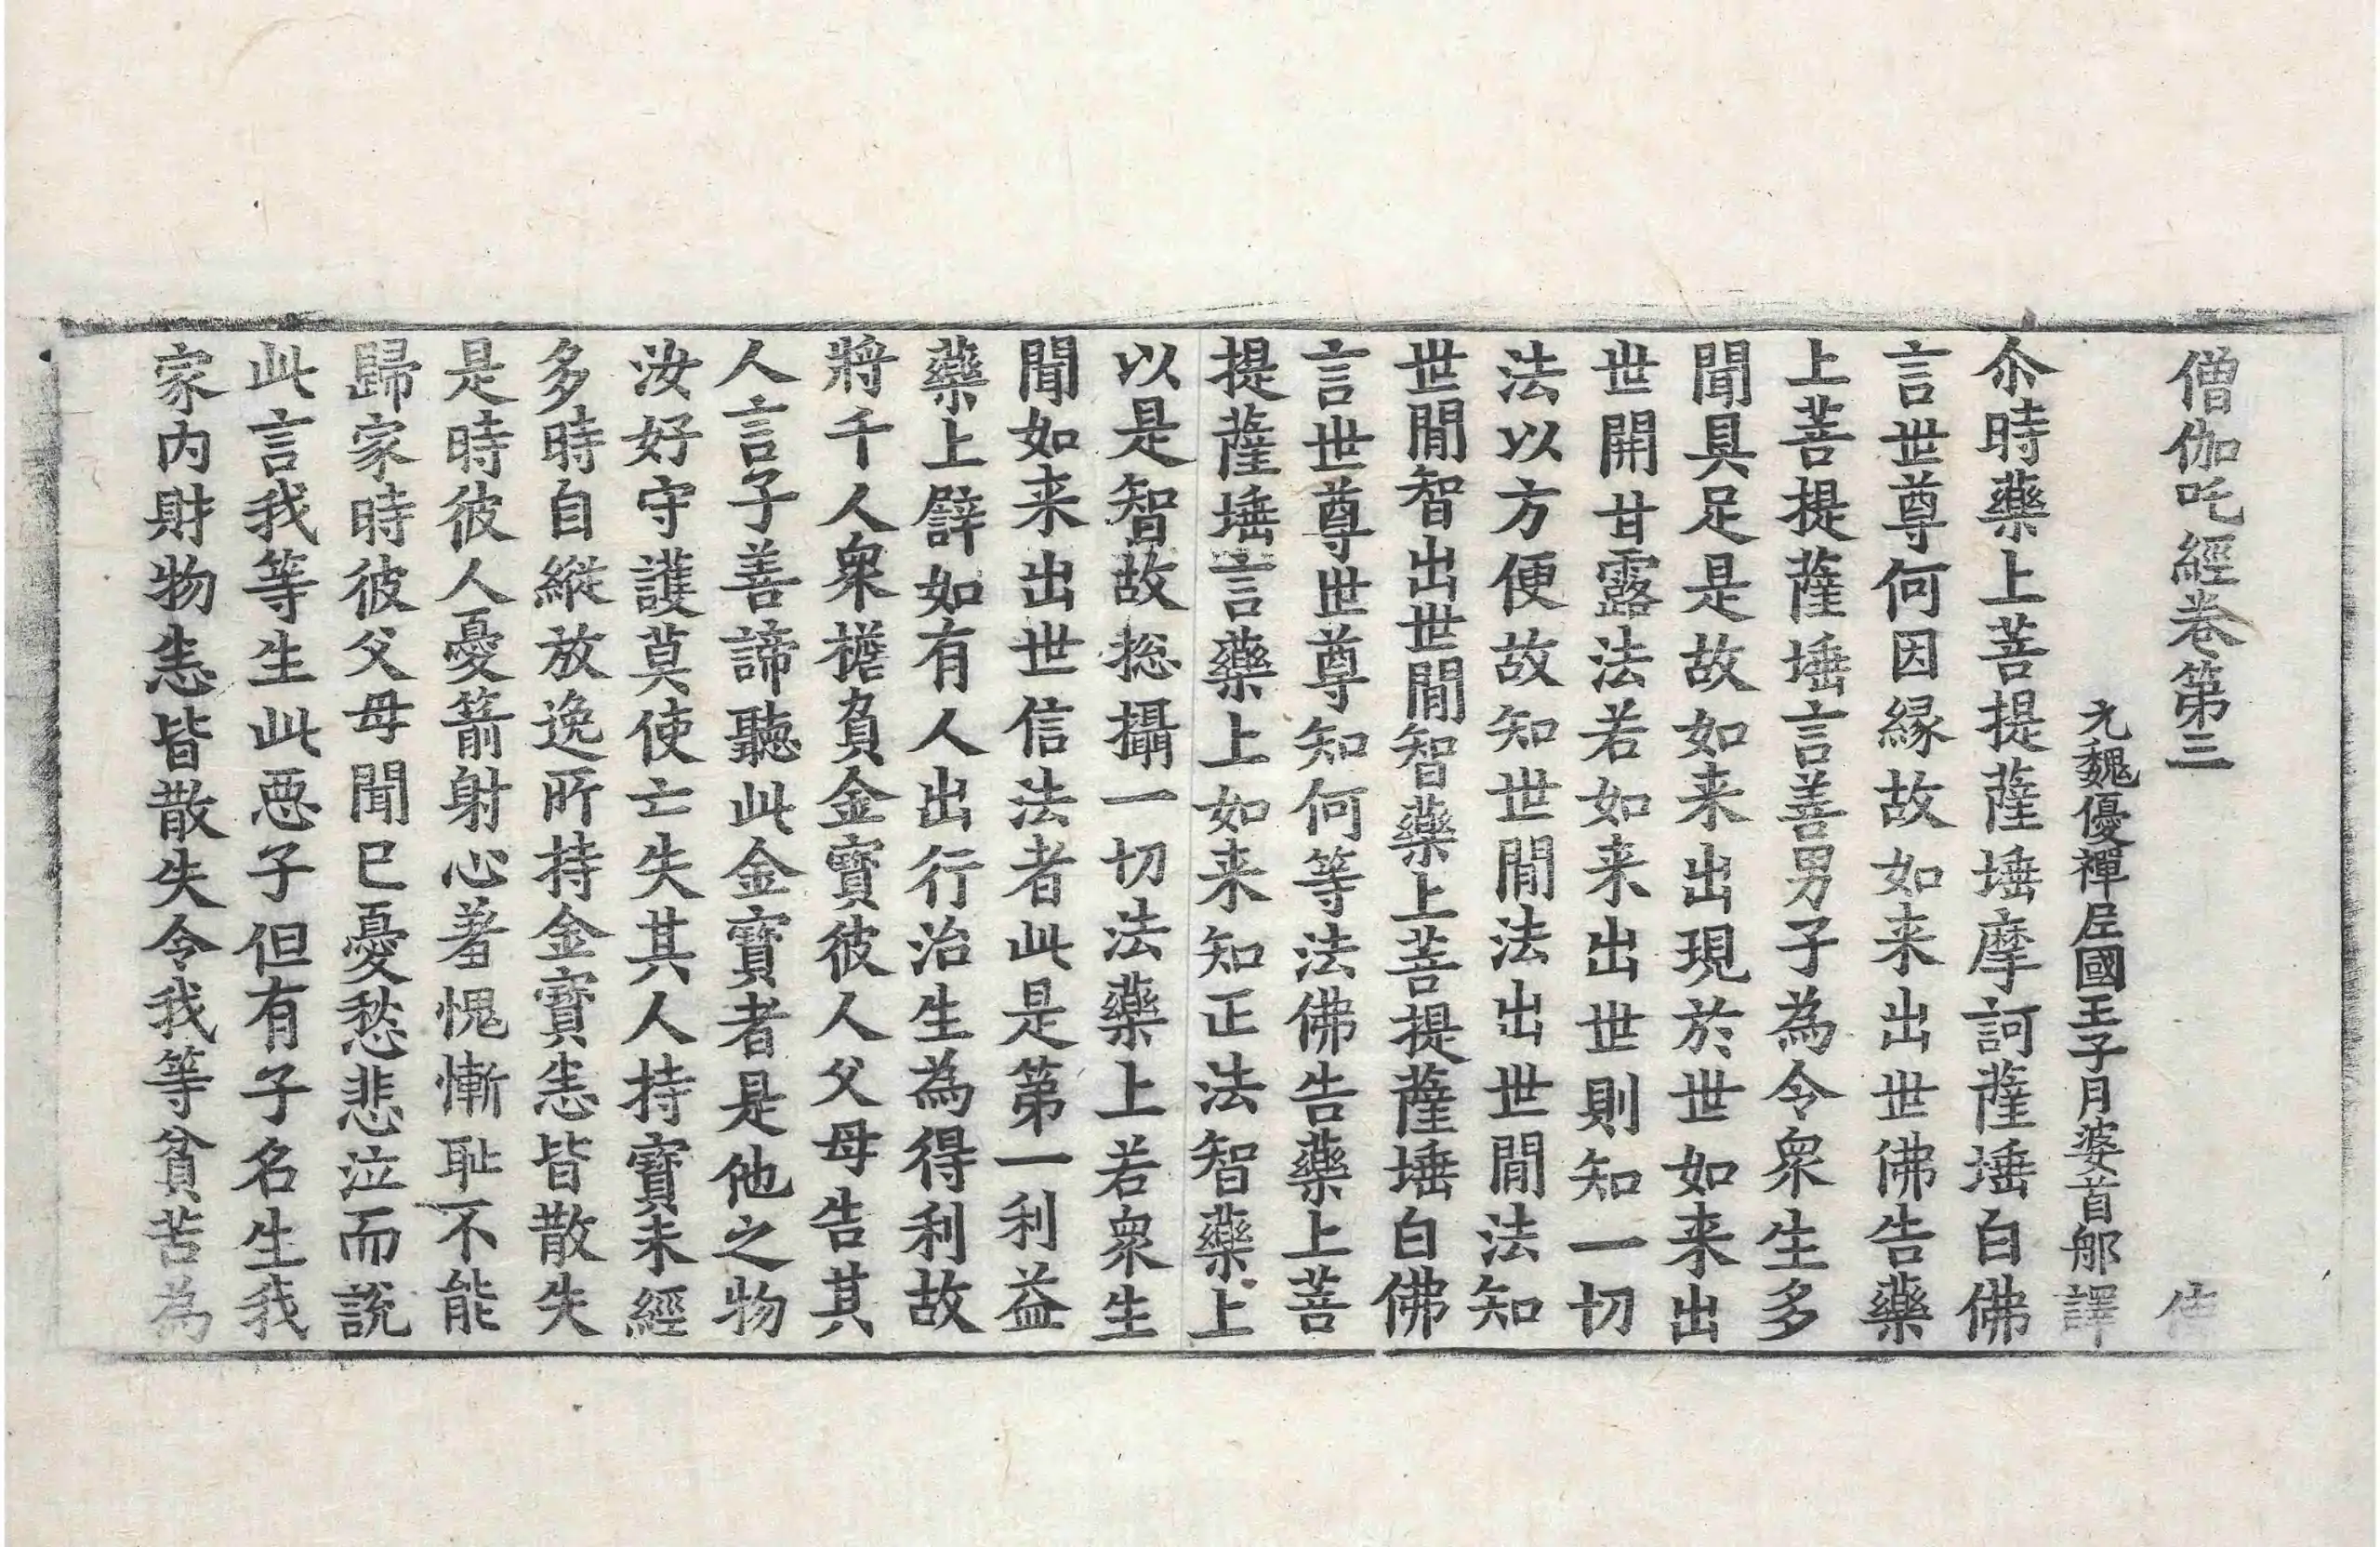 僧伽吒經卷第三 使
元魏優禪尼國王子月婆首那譯
尒時藥上菩提薩埵摩訶薩埵白佛
言世尊何因緣故如来出世佛告藥
上菩提薩埵言善男子為令衆生多
聞具足是故如来出現於世如来出
世開甘露法若如来出世則知一切
法以方便故知世閒法出世閒法知
世閒智出世閒智藥上菩提薩埵白佛
言世尊世尊知何等法佛告藥上菩
提薩埵言藥上如来知正法智藥上
以是智故捴攝一切法藥上若衆生
聞如来出世信法者此是第一利益
藥上譬如有人出行治生為得利故
將千人衆擔負金寶彼人父母告其
人言子善諦聽此金寶者是他之物
汝好守護莫使亡失其人持寶未經
多時自縱放逸所持金寶恚皆散失
是時彼人憂箭射心著愧慚耻不能
歸家時彼父母聞已憂愁悲泣而說
此言我等生此惡子但有子名生我
家内財物恚皆散失令我等貧苦為